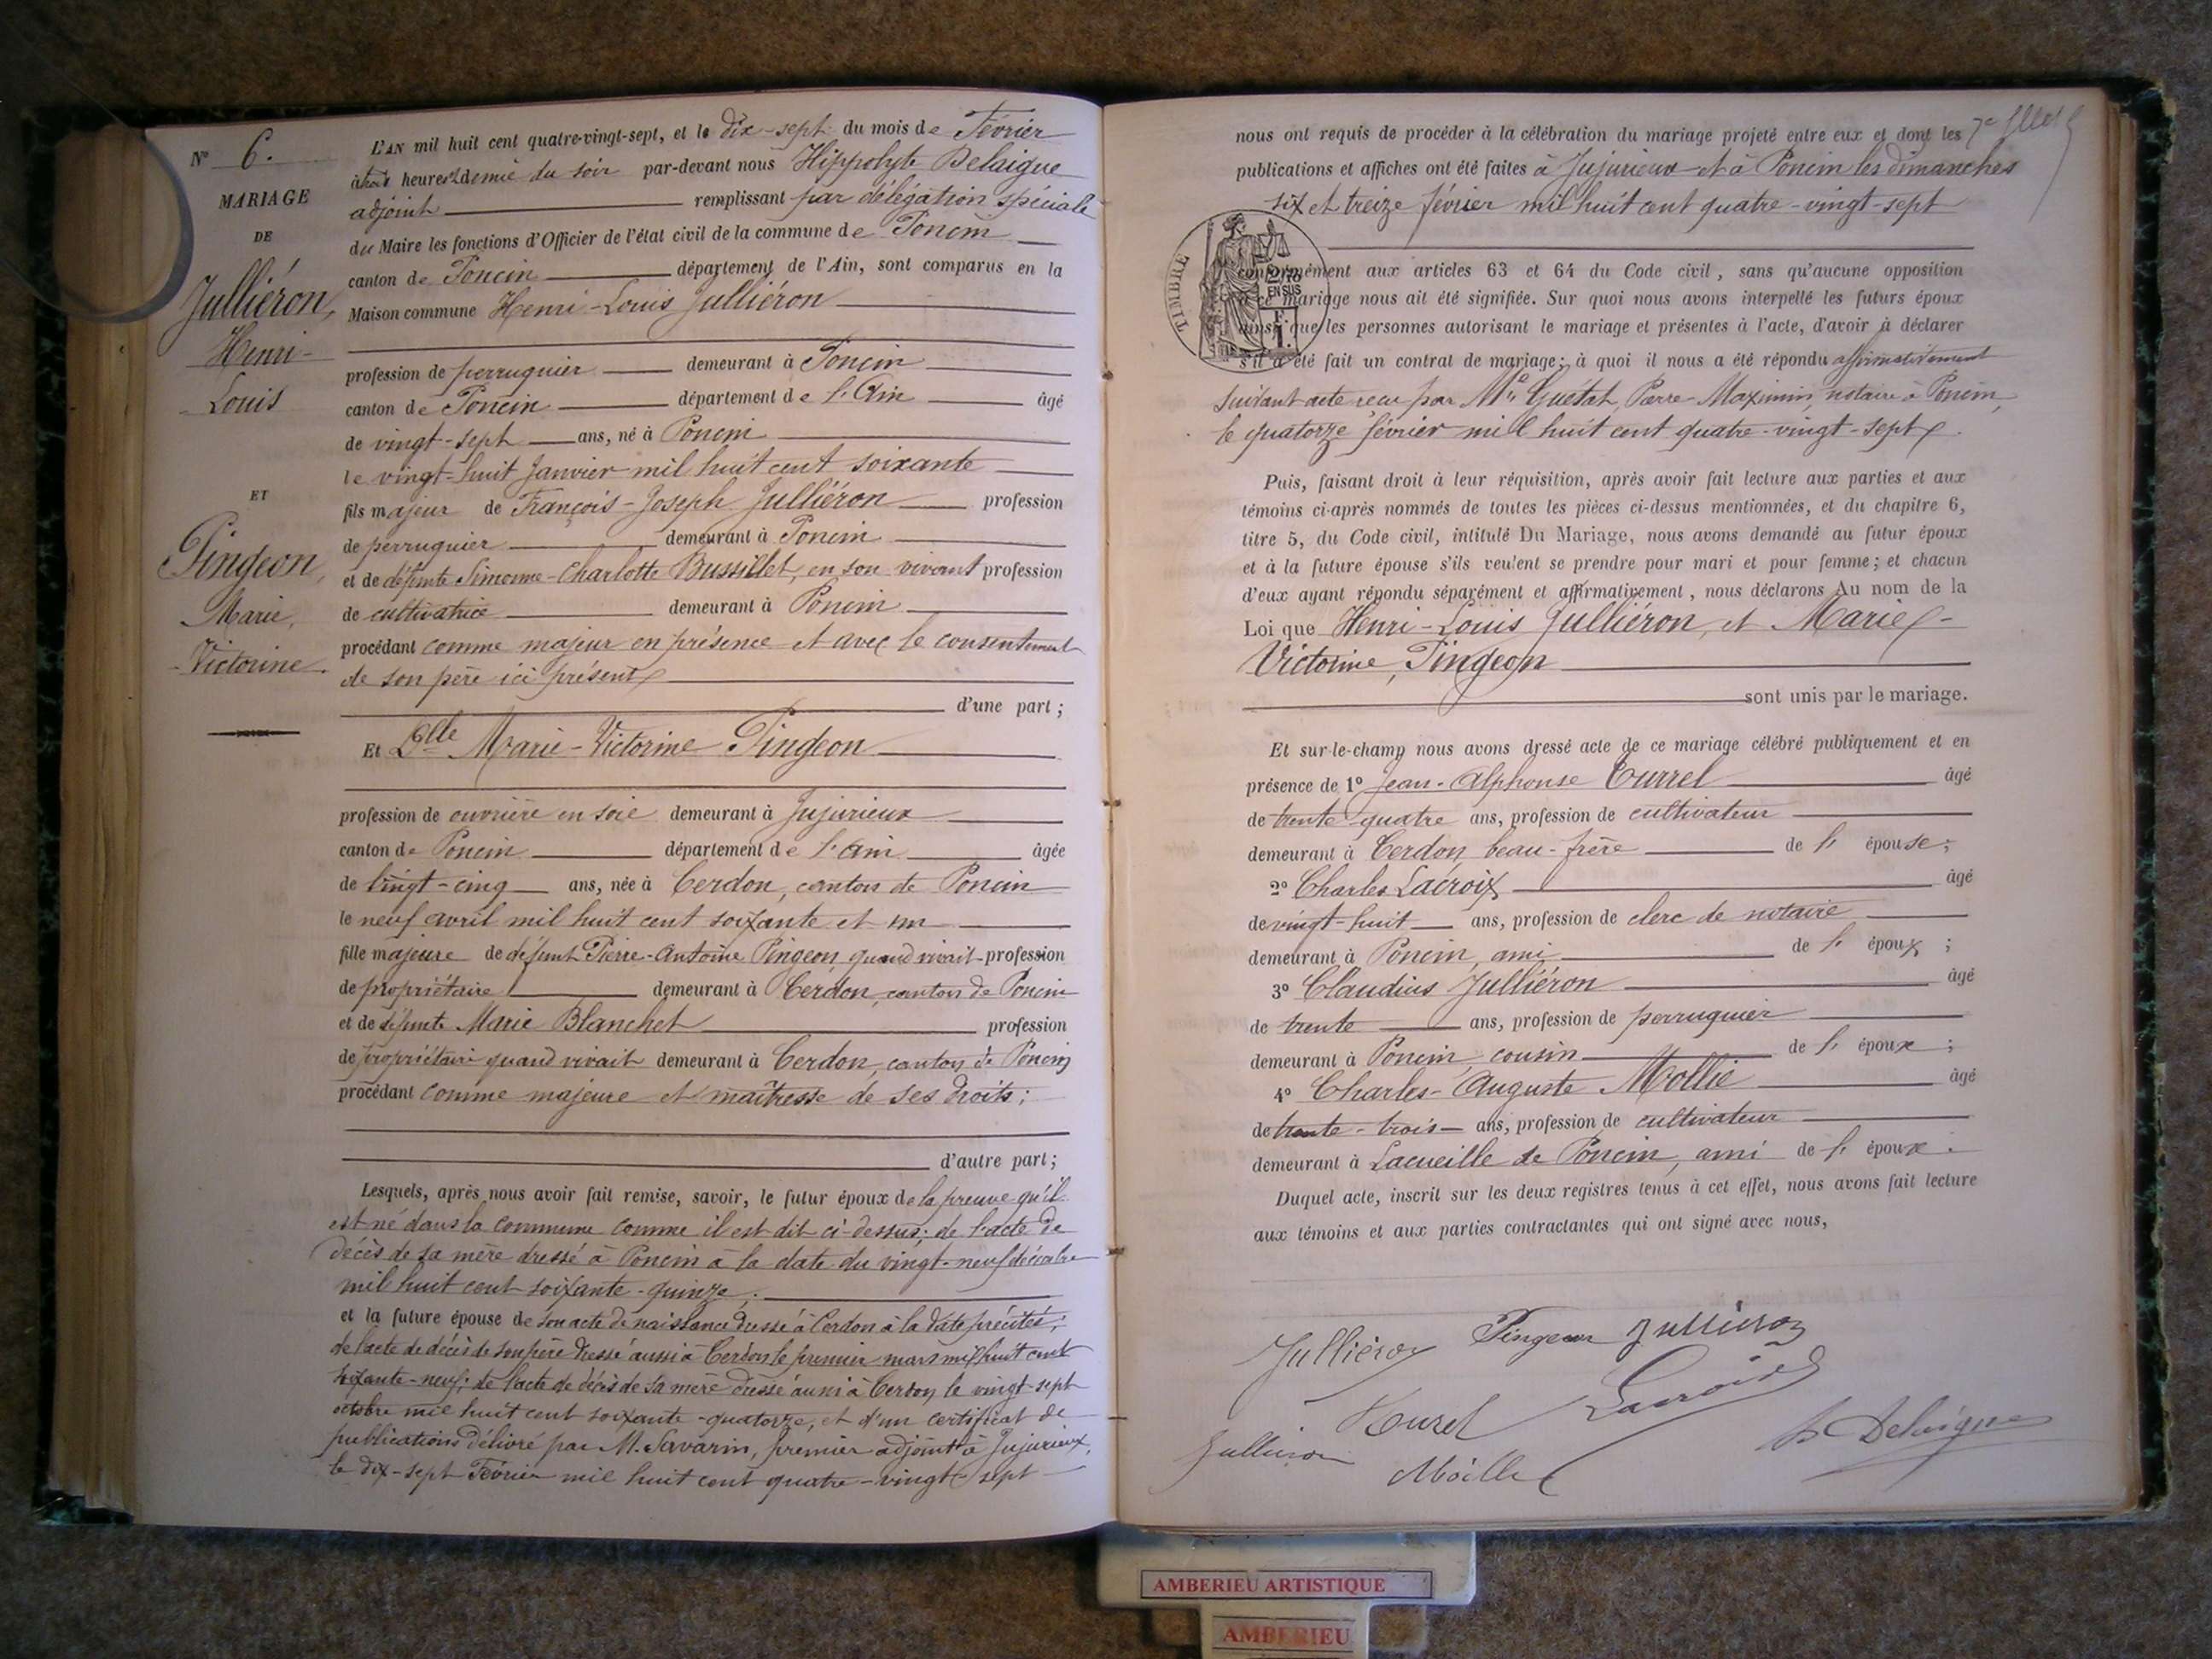 N° 6.
MARIAGE
DE
Julliéron,
Henri-
Louis
ET
Pingeon,
Marie,
Victorine
L'AN mil huit cent quatre-vingt-sept, et le dix-sept du mois de Février
à trois heures et demie du soir par-devant nous Hippolyte Delaigue
adjoint remplissant par délégation spéciale
du Maire les fonctions d'Officier de l'état civil de la commune de Poncin
canton de Poncin département de l'Ain, sont comparus en la
Maison commune Henri-Louis Julliéron
profession de perruquier demeurant à Poncin
canton de Poncin département de l'Ain âgé
de vingt-sept ans, né à Poncin
le vingt-huit Janvier mil huit cent soixante
fils majeur de François-Joseph Julliéron profession
de perruquier demeurant à Poncin
et de défunte Simonne-Charlotte Bussillet, en son vivant profession
de cultivatrice demeurant à Poncin
procédant comme majeur en présence et avec le consentement
de son père ici présent
d'une part ;
Et Dlle Marie-Victorine Pingeon
profession de ouvrière en soie demeurant à Jujurieux
canton de Poncin département de l'Ain âgée
de vingt-cinq ans, née à Cerdon, canton de Poncin
le neuf avril mil huit cent soixante et un
fille majeure de défunt Pierre-Antoine Pingeon quand vivait profession
de propriétaire demeurant à Cerdon, canton de Poncin
et de défunte Marie Blanchet profession
de propriétaire quand vivait demeurant à Cerdon, canton de Poncin
procédant comme majeure et maîtresse de ses droits ;
d'autre part ;
Lesquels, après nous avoir fait remise, savoir, le futur époux de la preuve qu'il
est né dans la commune comme il est dit ci-dessus ; de l'acte de
décès de sa mère dressé à Poncin à la date du vingt-neuf décembre
mil huit cent soixante-quinze ;
et la future épouse de son acte de naissance dressé à Cerdon à la date précitée ;
de l'acte de décès de son père dressé aussi à Cerdon le premier mars mil huit cent
soixante-neuf ; de l'acte de décès de sa mère dressé aussi à Cerdon, le vingt-sept
octobre mil huit cent soixante-quatorze, et d'un certificat de
publications délivré par M. Savarin, premier adjoint à Jujurieux,
le dix-sept Février mil huit cent quatre-vingt-sept
nous ont requis de procéder à la célébration du mariage projeté entre eux et dont les
publications et affiches ont été faites à Jujurieux et à Poncin les dimanches
six et treize février mil huit cent quatre-vingt-sept
TIMBRE
EN SUS
conformément aux articles 63 et 64 du Code civil, sans qu'aucune opposition
à ce mariage nous ait été signifiée. Sur quoi nous avons interpellé les futurs époux
ainsi que les personnes autorisant le mariage et présentes à l'acte, d'avoir à déclarer
s'il a été fait un contrat de mariage ; à quoi il nous a été répondu affirmativement
suivant acte reçu par Me Guétat, Pierre-Maximin, notaire à Poncin,
le quatorze février mil huit cent quatre-vingt-sept
Puis, faisant droit à leur réquisition, après avoir fait lecture aux parties et aux
témoins ci-après nommés de toutes les pièces ci-dessus mentionnées, et du chapitre 6,
titre 5, du Code civil, intitulé Du Mariage, nous avons demandé au futur époux
et à la future épouse s'ils veulent se prendre pour mari et pour femme ; et chacun
d'eux ayant répondu séparément et affirmativement, nous déclarons Au nom de la
Loi que Henri-Louis Julliéron, et Marie-
Victorine, Pingeon
sont unis par le mariage.
Et sur-le-champ nous avons dressé acte de ce mariage célébré publiquement et en
présence de 1° Jean-Alphonse Currel âgé
de trente-quatre ans, profession de cultivateur
demeurant à Cerdon, beau-frère de l' épouse ;
2° Charles Lacroix âgé
de vingt-huit ans, profession de clerc de notaire
demeurant à Poncin, ami de l' époux ;
3° Claudius Julliéron âgé
de trente ans, profession de perruquier
demeurant à Poncin, cousin de l' époux ;
4° Charles-Auguste Mollie âgé
de trente-trois ans, profession de cultivateur
demeurant à Lacueille de Poncin, ami de l' époux.
Duquel acte, inscrit sur les deux registres tenus à cet effet, nous avons fait lecture
aux témoins et aux parties contractantes qui ont signé avec nous,
Julliéron Pingeon Julliéron
Lacroix
H Delaigue
Julliéron
AMBERIEU ARTISTIQUE
AMBERIEU